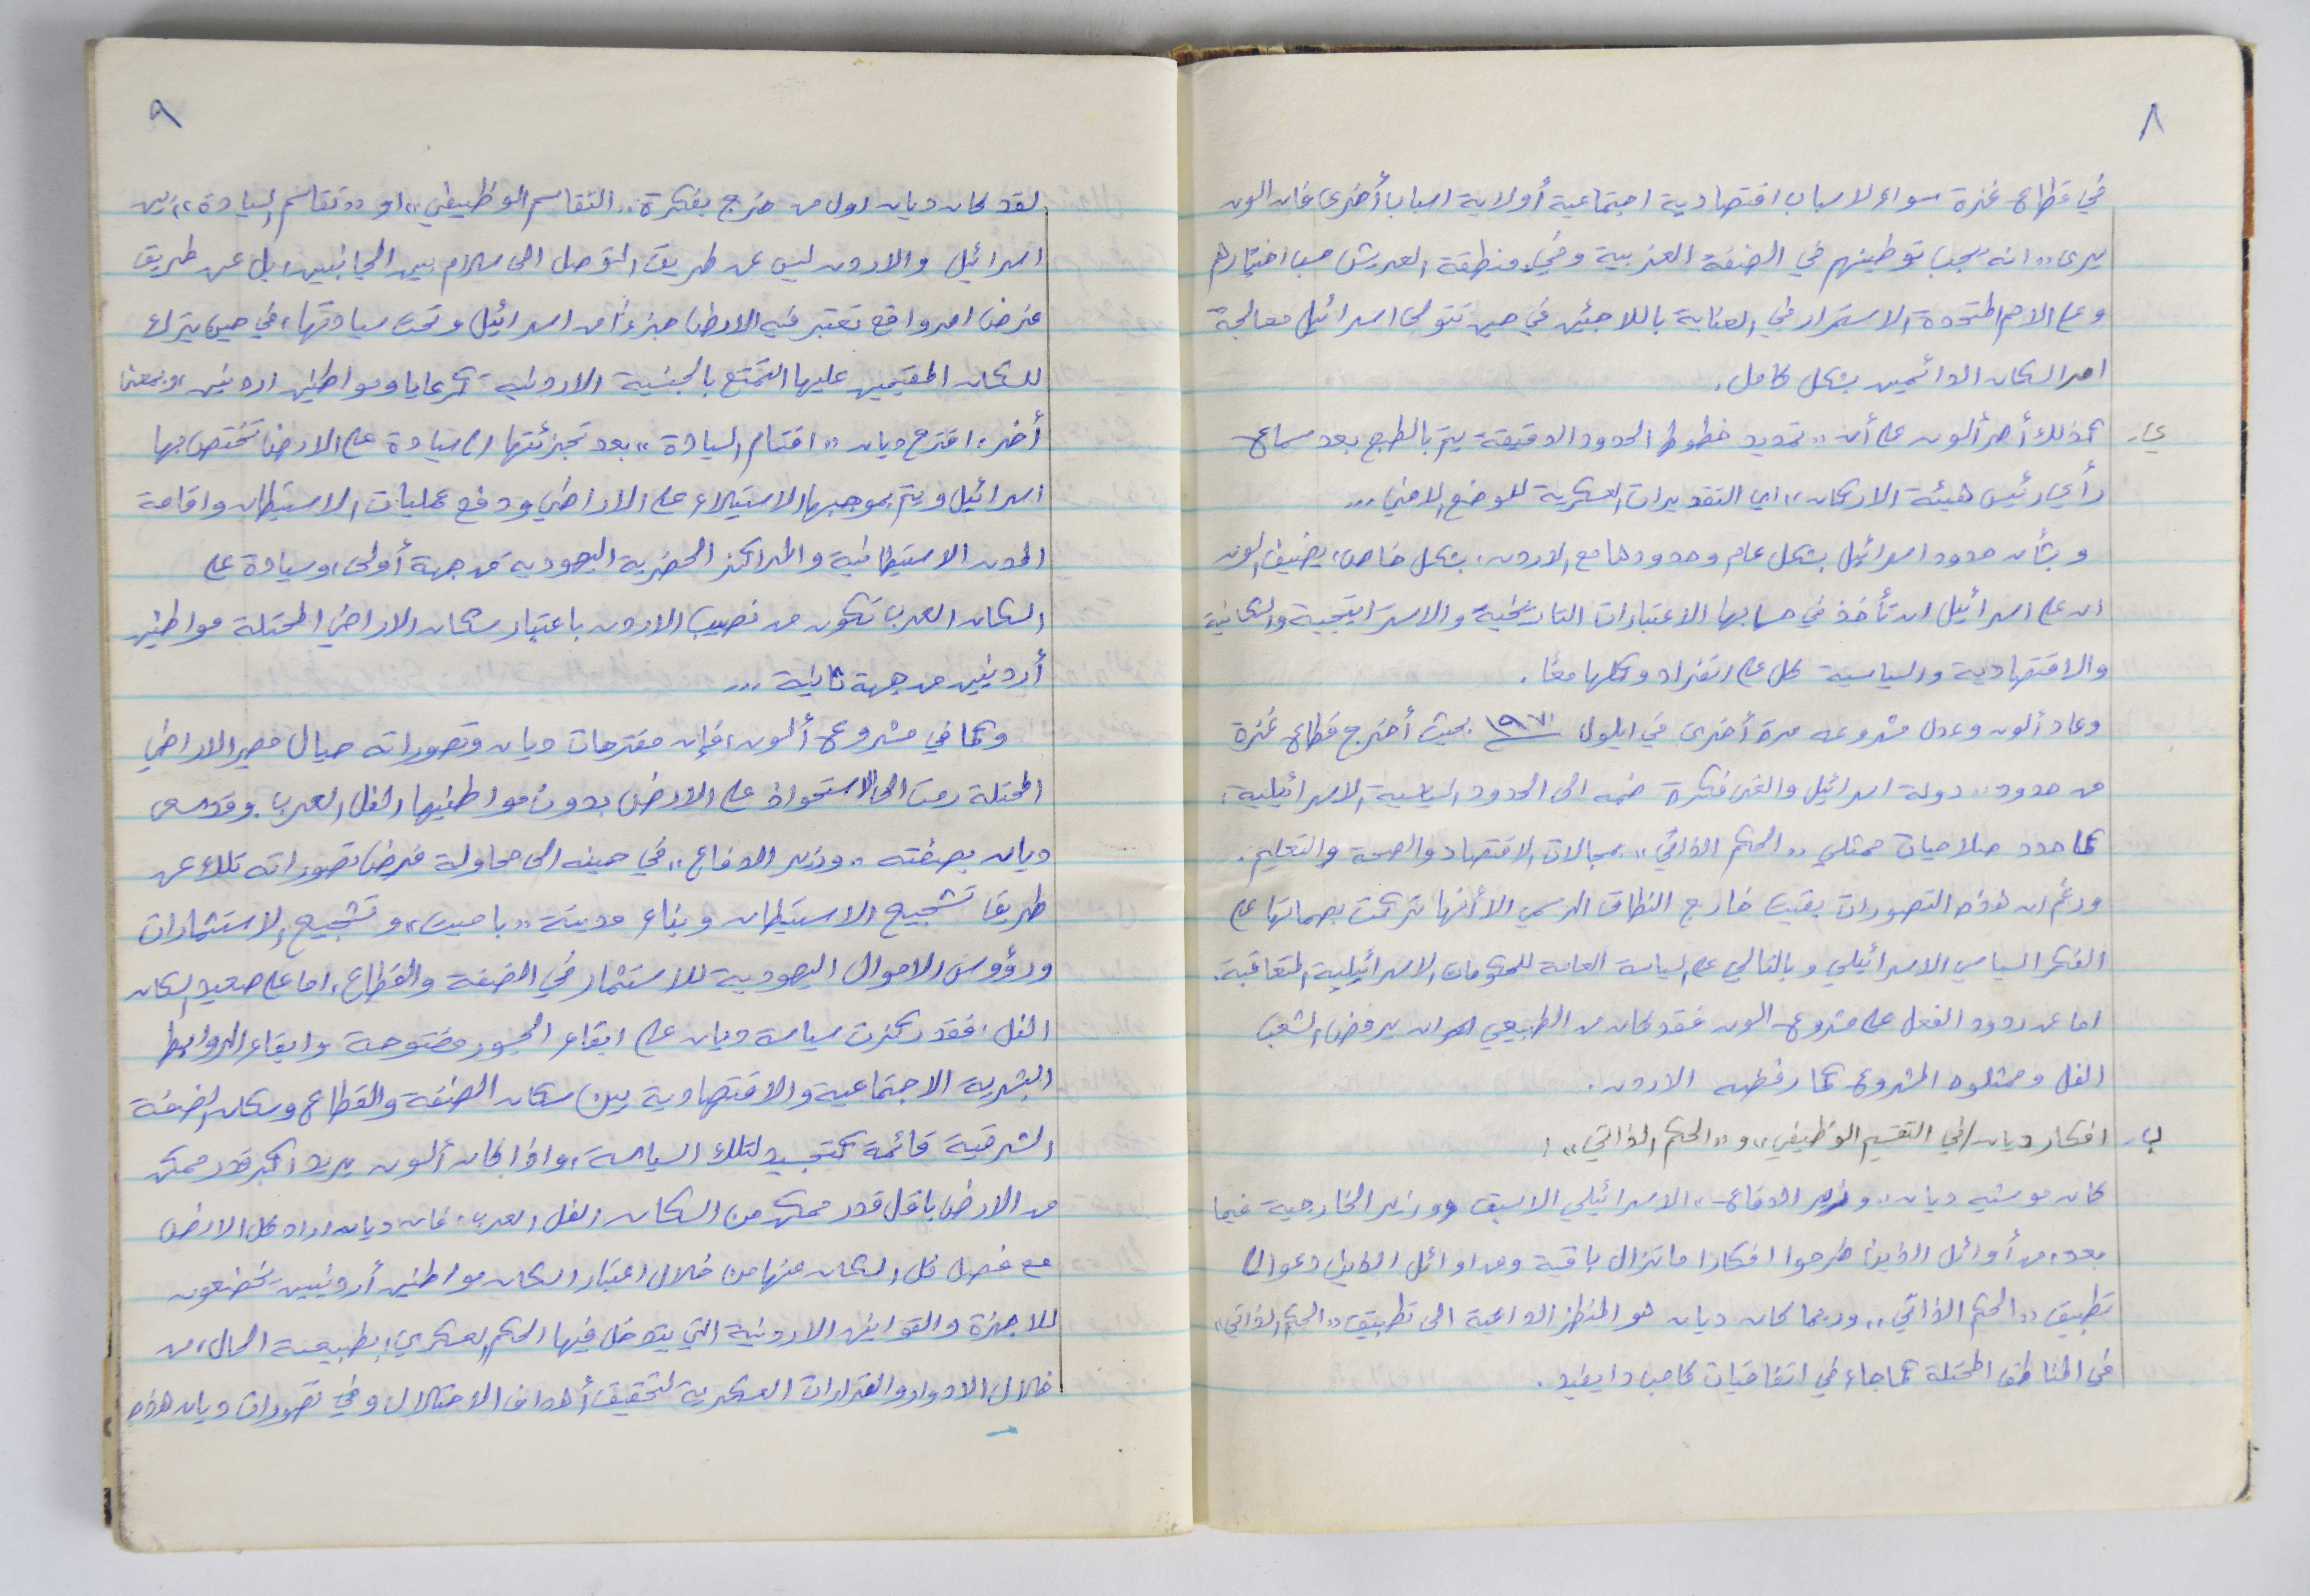 ٨
في قطاع غزة سواء لاسباب اقتصادية اجتماعية أو لاية اسباب أخرى فان الون
يرى "انه يجب توطينهم في الضفة الغربية وفي منطقة العريش حسب اختيارهم
وعلى الامم المتحدة الاستمرار في العناية باللاجئين في حين تتولى اسرائيل معالجة
امر السكان الدائمين بشكل كامل.
ي- كذلك أصر ألون على أن "تحديد خطوط الحدود الدقيقة يتم بالطبع بعد سماع
رأي رئيس هيئة الاركان" اي التقديرات العسكرية للوضع الامني...
وبشأن حدود اسرائيل بشكل عام وحدودها مع الاردن، بشكل خاص، يضيف الون
ان على اسرائيل ان تأخذ في حسابها الاعتبارات التاريخية والاستراتيجية والسكانية
والاقتصادية والسياسية كل على انفراد وكلها معًا.
وعاد ألون وعدل مشروعه مرة أخرى في ايلول ١٩٧١ بحيث أخرج قطاع غزة
من حدود "دولة اسرائيل والغى فكرة ضمه الى الحدود السياسية الاسرائيلية،
كما حدد صلاحيات ممثلي "الحكم الذاتي" بمجالات الاقتصاد والصحة والتعليم.
ورغم ان هذه التصورات بقيت خارج النطاق الرسمي الا أنها تركت بصماتها على
الفكر السياسي الاسرائيلي وبالتالي على السياسة العامة للحكومات الاسرائيلية المتعاقبة.
اما عن ردود الفعل على مشروع الون فقد كان من الطبيعي ان يرفض الشعب
الفل وممثلوه المشروع كما رفضه الاردن.
ب- افكار ديان في التقسيم الوظيفي" و "الحكم الذاتي":
كان موشيه ديان "وزير الدفاع" الاسرائيلي الاسبق ووزير الخارجية فيما
بعد، من أوائل الذين طرحوا افكارا ما تزال باقية ومن اوائل الذين دعوا الى
تطبيق "الحكم الذاتي"، وربما كان ديان هو المنظر الداعية الى تطبيق "الحكم الذاتي"
في المناطق المحتلة كما جاء في اتفاقيات كامب دايفيد.
٩
لقد كان ديان اول من خرج بفكرة "التقاسم الوظيفي" او "تقاسم السيادة" بين
اسرائيل والاردن ليس عن طريق التوصل الى سلام بين الجانبين، بل عن طريق
فرض امر واقع تعتبر فيه الارض جزءًا من اسرائيل وتحت سيادتها، في حين يترك
للسكان المقيمين عليها التمتع بالجنسية الاردنية كرعايا ومواطنين اردنيين، وبمعنى
أخر، اقترح ديان "اقتسام السيادة" بعد تجزئتها الى سيادة على الارض تختص بها
اسرائيل ويتم بموجبها الاستيلاء على الاراضي ودفع عمليات الاستيطان واقامة
المدن الاستيطانية والمراكز الحضرية اليهودية من جهة أولى، وسيادة على
السكان العرب تكون من نصيب الاردن باعتبار سكان الاراضي المحتلة مواطنين
أردنيين من جهة ثانية...
وكما في مشروع ألون، فإن مقترحات ديان وتصوراته حيال مصير الاراضي
المحتلة رمت الى الاستحواذ على الارض بدون مواطنيها الفل العرب. وقد سعى
ديان بصفته "وزير الدفاع" في حينه الى محاولة فرض تصوراته تلك عن
طريق تشجيع الاستيطان وبناء مدينة "ياميت" وتشجيع الاستثمارات
ورؤوس الاموال اليهودية للاستثمار في الضفة والقطاع، اما على صعيد السكان
الفل، فقد ركزت سياسة ديان على ابقاء الجسور مفتوحة وابقاء الروابط
البشرية الاجتماعية والاقتصادية بين سكان الضفة والقطاع وسكان الضفة
الشرقية قائمة كتجسيد لتلك السياسة، واذا كان ألون يريد اكبر قدر ممكن
من الارض باقل قدر ممكن من السكان الفل العرب، فان ديان اراد كل الارض
مع فصل كل السكان عنها من خلال اعتبار السكان مواطنين أردنيين يخضعون
للاجهزة والقوانين الاردنية التي يتدخل فيها الحكم العسكري، بطبيعة الحال، من
خلال الاوامر والقرارات العسكرية لتحقيق أهداف الاحتلال وفي تصورات ديان هذه